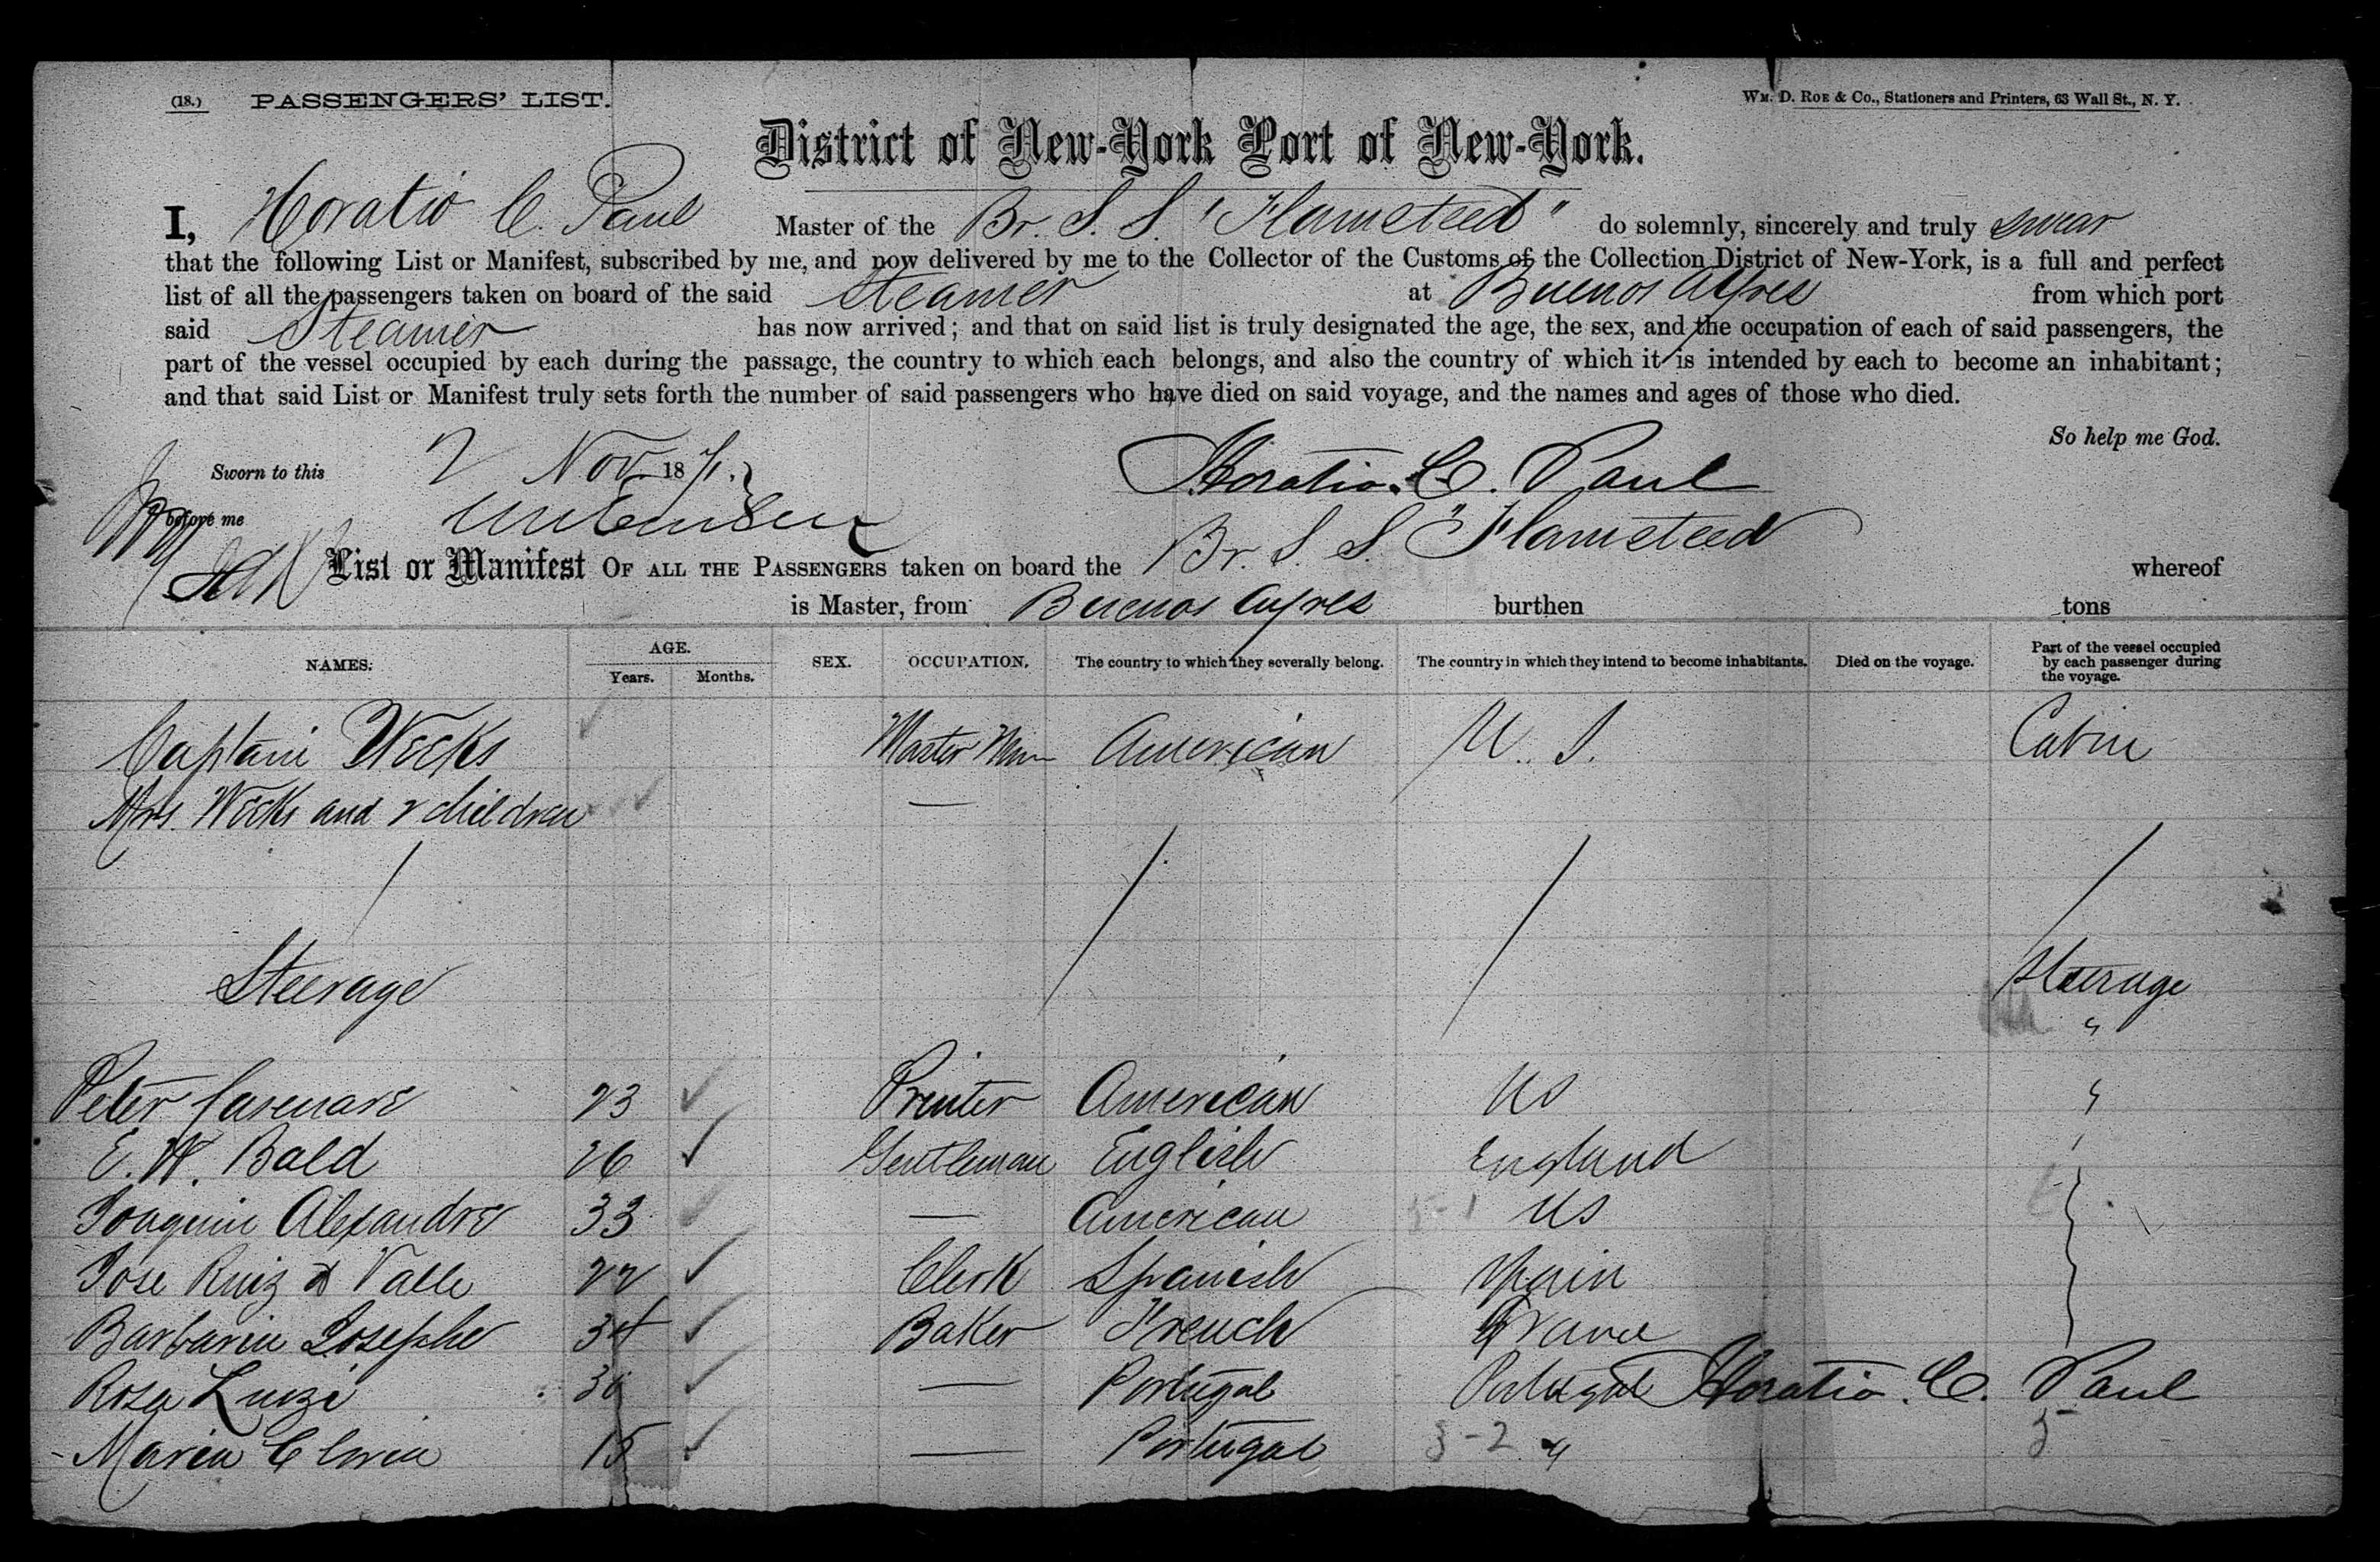 (18.) PASSENGERS' LIST.
WM. D. ROE & Co., Stationers and Printers, 63 Wall St., N. Y.
District of New-York Port of New-York.
I, Horatio C. Paul Master of the Br. S. S. "Flamsteed" do solemnly, sincerely and truly swear
that the following List or Manifest, subscribed by me, and now delivered by me to the Collector of the Customs of the Collection District of New-York, is a full and perfect
list of all the passengers taken on board of the said Steamer at Buenos Ayres from which port
said Steamer has now arrived; and that on said list is truly designated the age, the sex, and the occupation of each of said passengers, the
part of the vessel occupied by each during the passage, the country to which each belongs, and also the country of which it is intended by each to become an inhabitant;
and that said List or Manifest truly sets forth the number of said passengers who have died on said voyage, and the names and ages of those who died.
So help me God.
Sworn to this 2 Nov. 1871. Horatio C. Paul
before me
List or Manifest OF ALL THE PASSENGERS taken on board the Br. S. S. "Flamsteed whereof
is Master, from Buenos Ayres burthen tons
NAMES. AGE. Years. Months. SEX. OCCUPATION. The country to which they severally belong. The country in which they intend to become inhabitants. Died on the voyage. Part of the vessel occupied by each passenger during the voyage.
Captain Weeks Master American U. S. Cabin
Mrs. Weeks and 2 children —
Steerage Steerage
"
Peter 23 Printer American US "
E. W. Bald 26 Gentleman English England
Joaquin Alexandre 33 — American 5-1 US
Jose Ruiz d Valle 22 Clerk Spanish Spain
Barbarin Josephe 34 Baker French France
Rosa Luize 30 — Portugal Portugal Horatio C. Paul
Maria 15 — Portugal 3-2 " 5